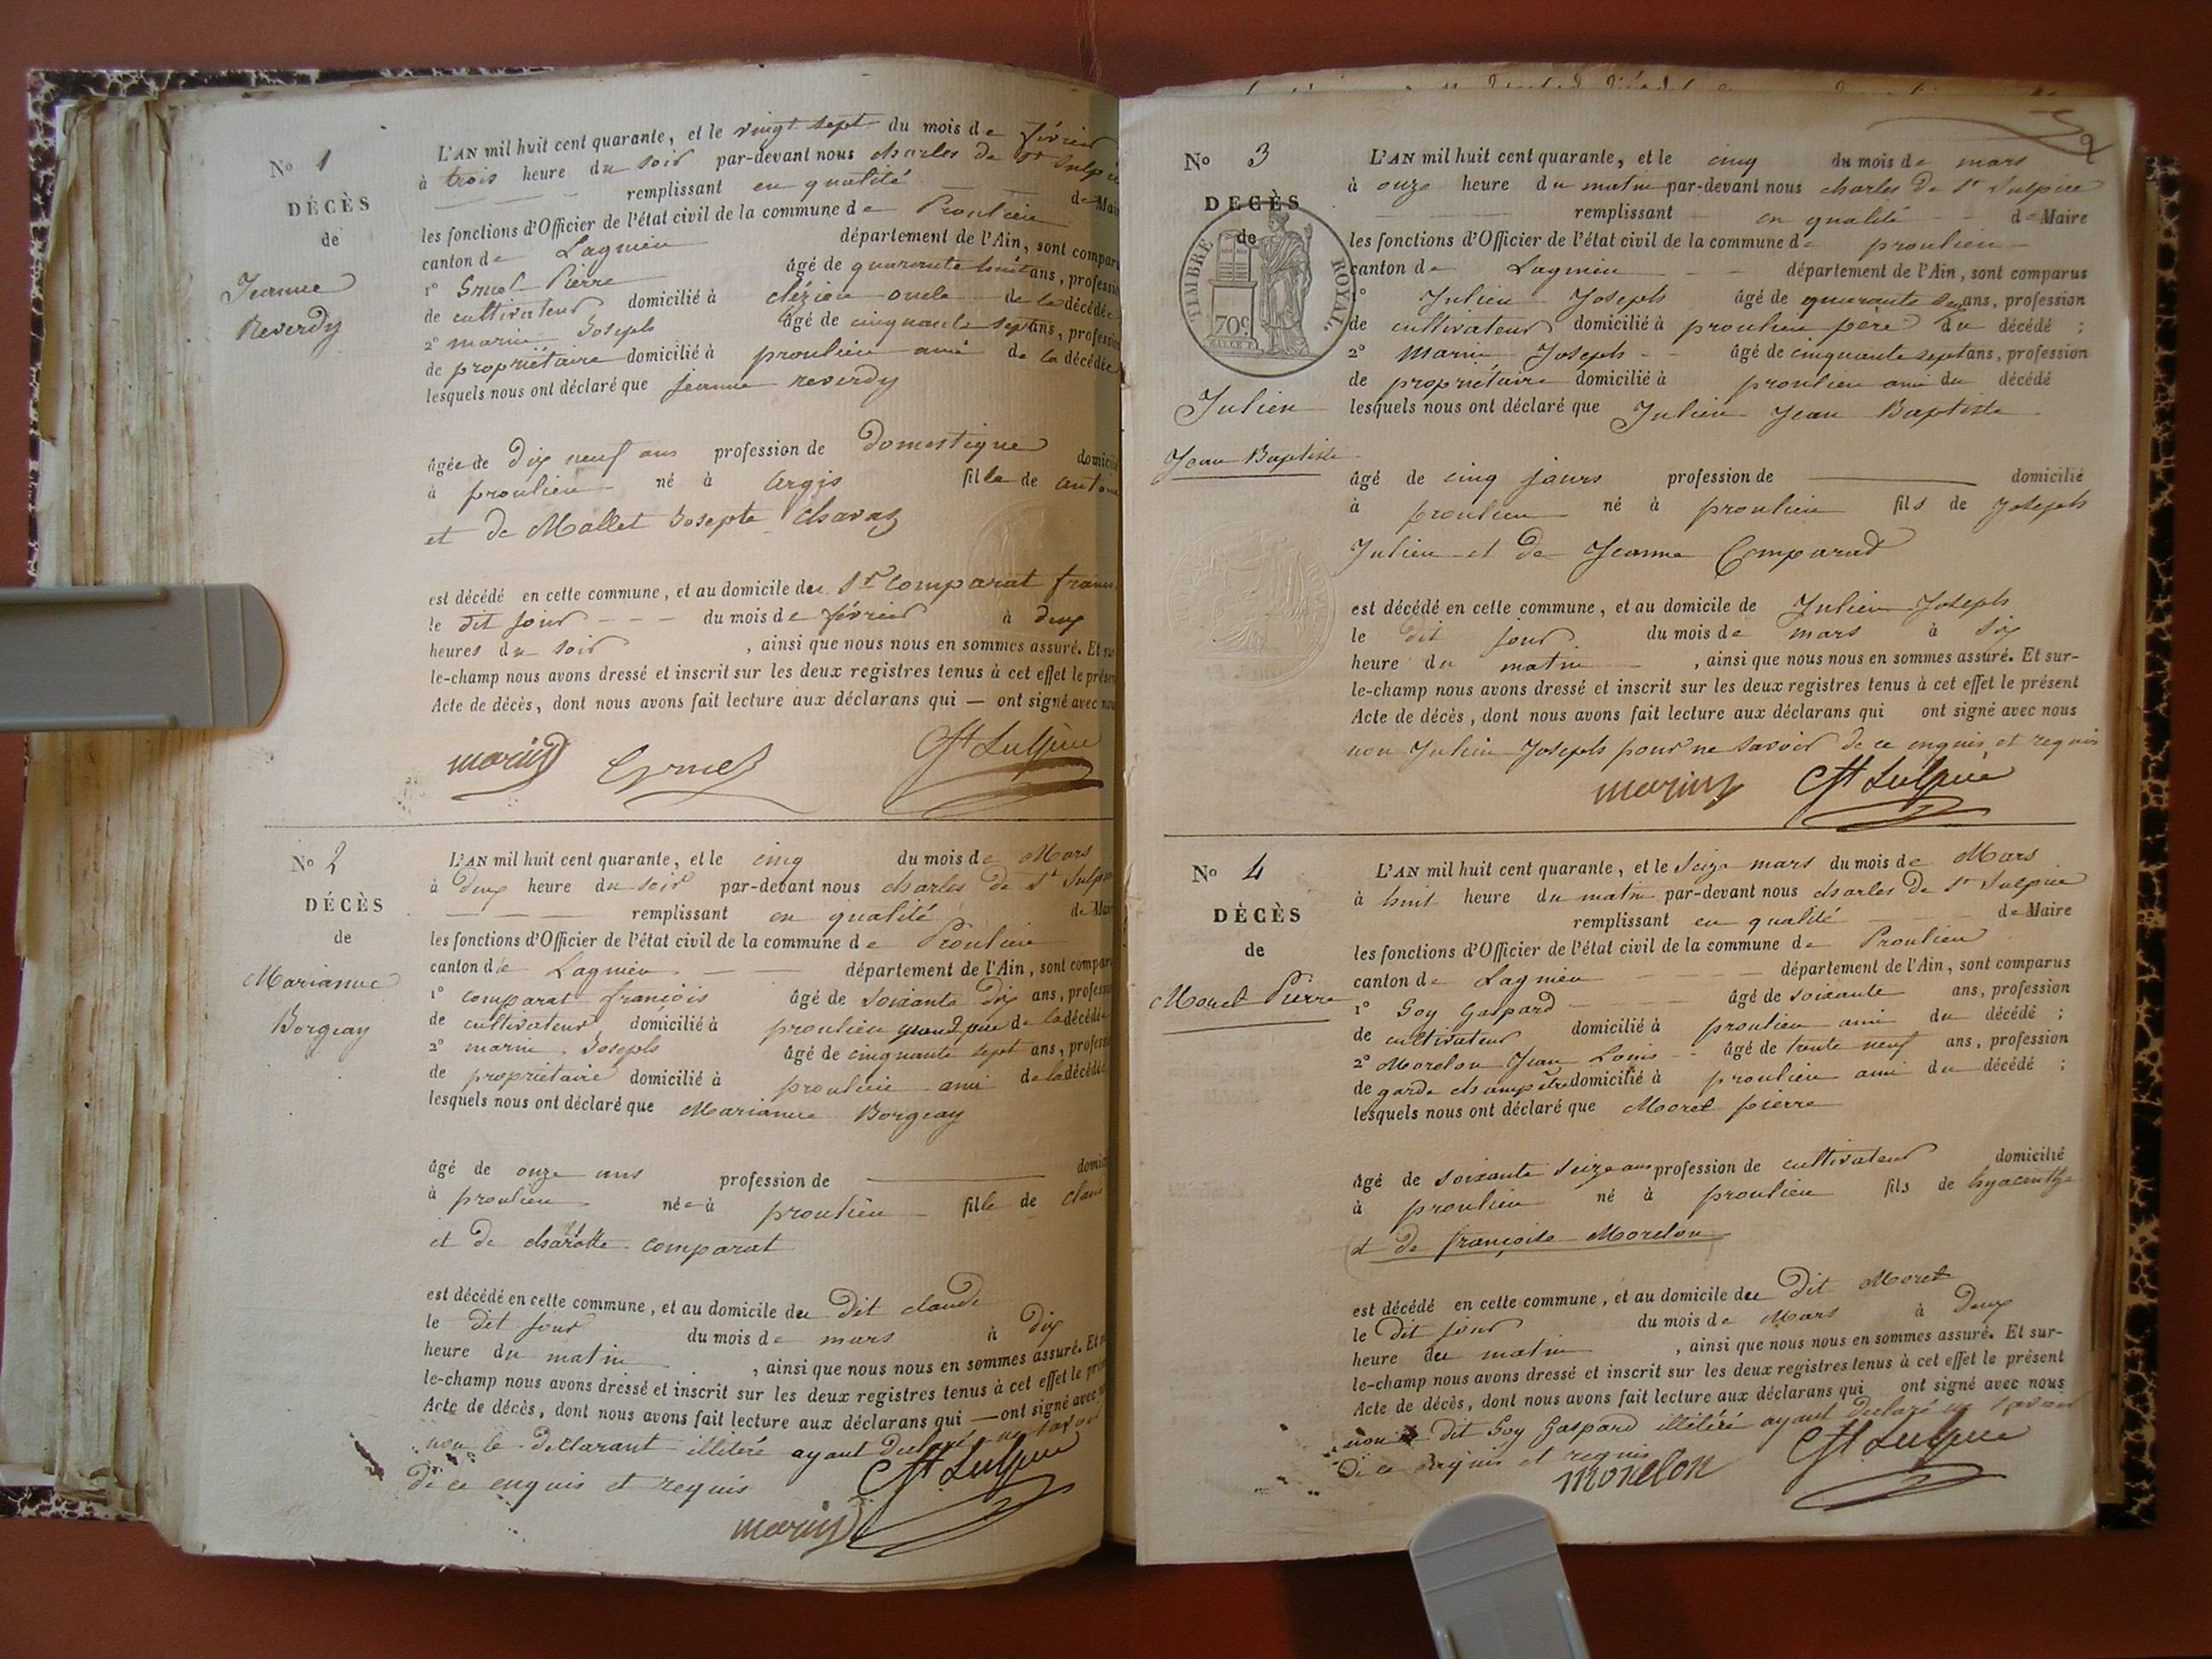 No 1
DÉCÈS
de
Jeanne
Reverdy
L'AN mil huit cent quarante, et le vingt sept du mois de février
à trois heure du soir par-devant nous charles de St Sulpice
remplissant en qualité de Maire
les fonctions d'Officier de l'état civil de la commune de Proulieu
canton de Lagnieu département de l'Ain, sont comparus
1° Pierre âgé de quarante huit ans, profession
de cultivateur domicilié à clézieu oncle de la décédée
2° marin Joseph âgé de cinquante sept ans, profession
de propriétaire domicilié à proulieu ami de la décédée
lesquels nous ont déclaré que jeanne reverdy
âgée de dix neuf ans profession de Domestique domicilié
à proulieu né à Argis fille de antoine
et de Mallet Josepte Chavaz
est décédé en cette commune, et au domicile du Sr Comparat
le dit jour du mois de février à deux
heures du soir , ainsi que nous nous en sommes assuré. Et sur-
le-champ nous avons dressé et inscrit sur les deux registres tenus à cet effet le présent
Acte de décès, dont nous avons fait lecture aux déclarans qui — ont signé avec nous
marin St Sulpice
No 2
DÉCÈS
de
Marianne
Borgeay
L'AN mil huit cent quarante, et le cinq du mois de Mars
à Deux heure du soir par-devant nous charles de St Sulpice
remplissant en qualité de Maire
les fonctions d'Officier de l'état civil de la commune de Proulieu
canton de Lagnieu département de l'Ain, sont comparus
1° comparat françois âgé de soixante dix ans, profession
de cultivateur domicilié à proulieu grand père de la décédée
2° marin Joseph âgé de cinquante sept ans, profession
de propriétaire domicilié à proulieu ami de la décédée
lesquels nous ont déclaré que Marianne Borgeay
âgé de onze ans profession de domicilié
à proulieu née à proulieu fille de claude
et de charlotte comparat
est décédé en cette commune, et au domicile du Dit claude
le dit jour du mois de mars à dix
heure du matin , ainsi que nous nous en sommes assuré. Et sur-
le-champ nous avons dressé et inscrit sur les deux registres tenus à cet effet le présent
Acte de décès, dont nous avons fait lecture aux déclarans qui — ont signé avec nous
non le déclarant illitéré ayant déclaré ne savoir
de ce enquis et requis
St Sulpice
marin
No 3
DECÈS
de
TIMBRE ROYAL
70c
Julien
Jean Baptiste
L'AN mil huit cent quarante, et le cinq du mois de mars
à onze heure du matin par-devant nous charles De St Sulpice
remplissant en qualité de Maire
les fonctions d'Officier de l'état civil de la commune de proulieu
canton de Lagnieu département de l'Ain, sont comparus
1° Julien Joseph âgé de quarante ans, profession
de cultivateur domicilié à proulieu père du décédé ;
2° Marin Joseph âgé de cinquante sept ans, profession
de propriétaire domicilié à proulieu ami du décédé
lesquels nous ont déclaré que Julien Jean Baptiste
âgé de cinq jours profession de domicilié
à proulieu né à proulieu fils de Joseph
Julien et de Jeanne Comparat
est décédé en cette commune, et au domicile de Julien Joseph
le dit jour du mois de mars à six
heure du matin , ainsi que nous nous en sommes assuré. Et sur-
le-champ nous avons dressé et inscrit sur les deux registres tenus à cet effet le présent
Acte de décès, dont nous avons fait lecture aux déclarans qui ont signé avec nous
non Julien Joseph pour ne savoir de ce enquis et requis
marin St Sulpice
No 4
DÉCÈS
de
Moret Pierre
L'AN mil huit cent quarante, et le seize mars du mois de Mars
à huit heure du matin par-devant nous charles De St Sulpice
remplissant en qualité de Maire
les fonctions d'Officier de l'état civil de la commune de Proulieu
canton de Lagnieu département de l'Ain, sont comparus
1° Goy Gaspard âgé de soixante ans, profession
de cultivateur domicilié à proulieu ami du décédé ;
2° Morelon Jean Louis âgé de trente neuf ans, profession
de garde champêtre domicilié à proulieu ami du décédé ;
lesquels nous ont déclaré que Moret pierre
âgé de soixante seize ans profession de cultivateur domicilié
à proulieu né à proulieu fils de hyacinthe
et de françoise Morelon
est décédé en cette commune, et au domicile du Dit Moret
le Dit jour du mois de Mars à Deux
heure du matin , ainsi que nous nous en sommes assuré. Et sur-
le-champ nous avons dressé et inscrit sur les deux registres tenus à cet effet le présent
Acte de décès, dont nous avons fait lecture aux déclarans qui ont signé avec nous
non dit Goy Gaspard illitéré ayant déclaré ne savoir
de ce enquis et requis
morelon St Sulpice